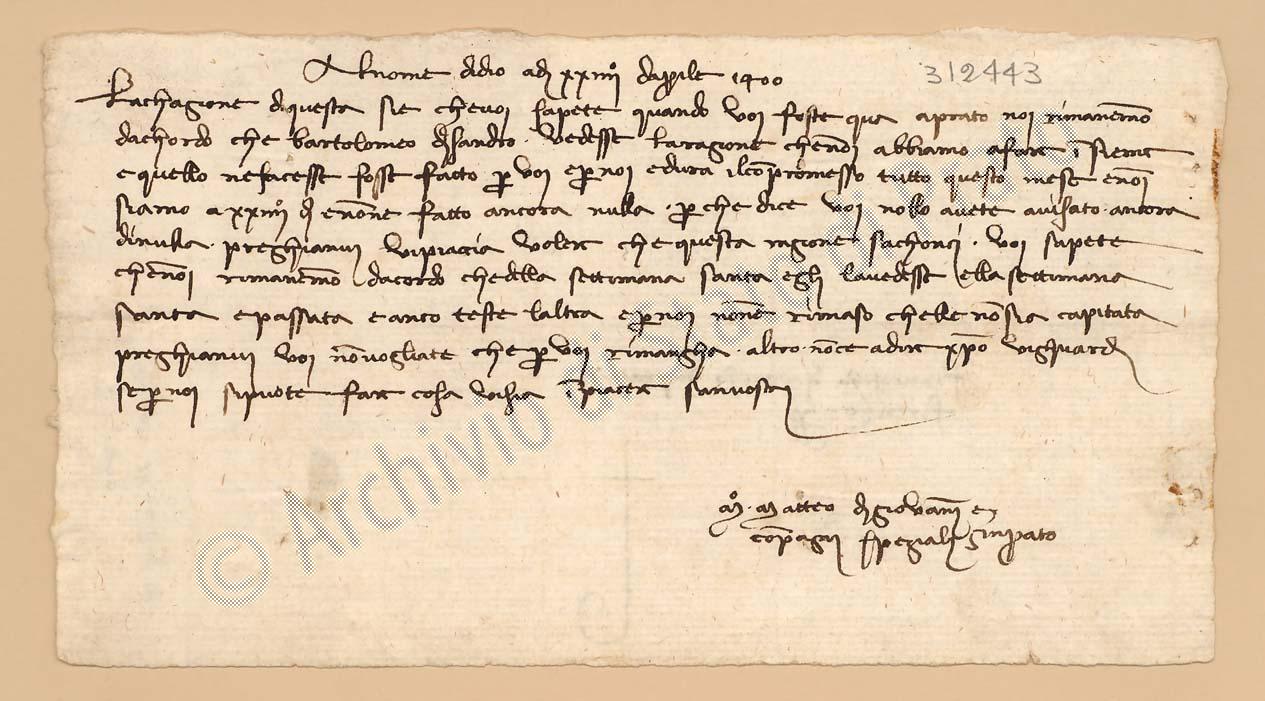 Al nome didio adj xxiiii° daprile 1400
312443
Lachagione diquesta sie chevoi sapete quando voi foste qua aprato noi rimanemo
dachordo che bartolomeo disandro vedesse laragione chenoi abbiamo afare insieme
e quello nefacesse fosse fatto per voi e per noi e dura ilcompromesso tutto questo mese enoi
siamo a xxiiii° di enone fatto ancora nulla perche dice voi nollo avete avisato ancora
dinulla preghianvi vipiaccia volere che questa ragione sachonci voi sapete
chenoi rimanemo dacordo chedella settimana santa egli lavedesse ella settimana
santa epassata e anco teste laltra e pernoi none rimaso chelle nonsia capitata
preghianvi voi nonvogliate che per voi rimangha altro nonce adire xpo vighuardi
se per noi sipuote fare cosa visia inpiacere sanvostri
M° Matteo digiovanni e
conpagni speziali inprato
© Archivio di Stato di Prato